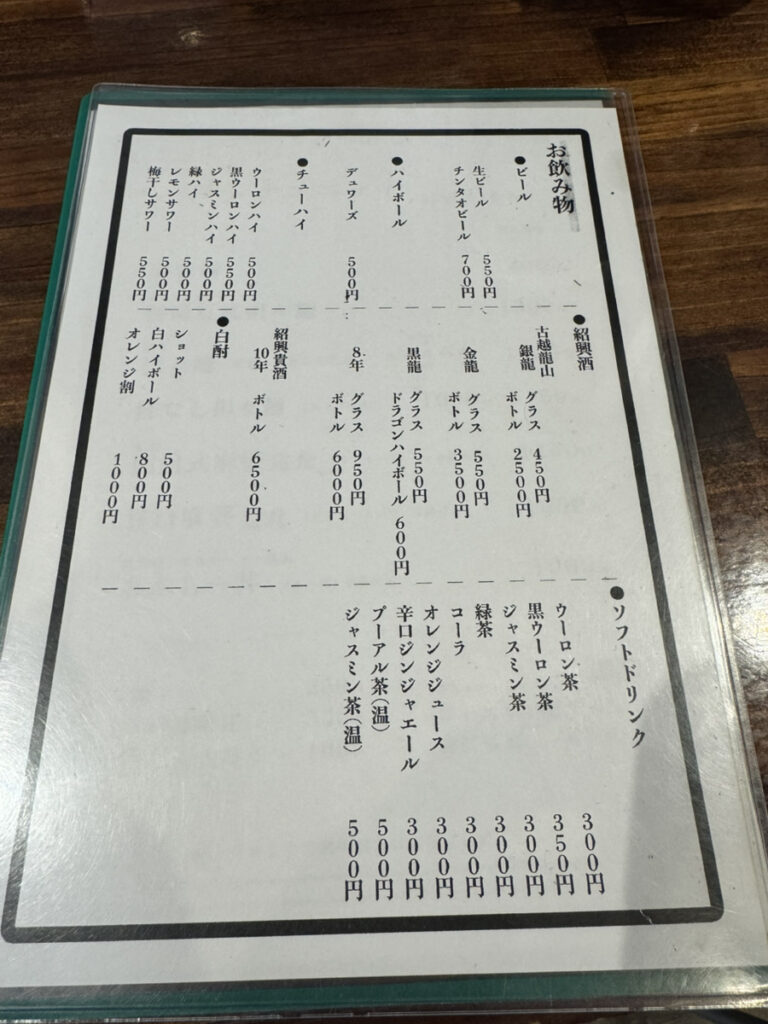 お飲み物
●ビール
生ビール 550円
チンタオビール 700円
●ハイボール
デュワーズ 500円
●チューハイ
ウーロンハイ 500円
黒ウーロンハイ 550円
ジャスミンハイ 500円
緑ハイ 500円
レモンサワー 500円
梅干しサワー 550円
●紹興酒
古越龍山
銀龍 グラス 450円
ボトル 2500円
金龍 グラス 550円
ボトル 3500円
黒龍 グラス 550円
ドラゴンハイボール 600円
8年 グラス 950円
ボトル 6000円
紹興貴酒
10年 ボトル 6500円
●白酎
ショット 500円
白ハイボール 800円
オレンジ割 1000円
●ソフトドリンク
ウーロン茶 300円
黒ウーロン茶 350円
ジャスミン茶 300円
緑茶 300円
コーラ 300円
オレンジジュース 300円
辛口ジンジャエール 300円
プーアル茶(温) 500円
ジャスミン茶(温) 500円